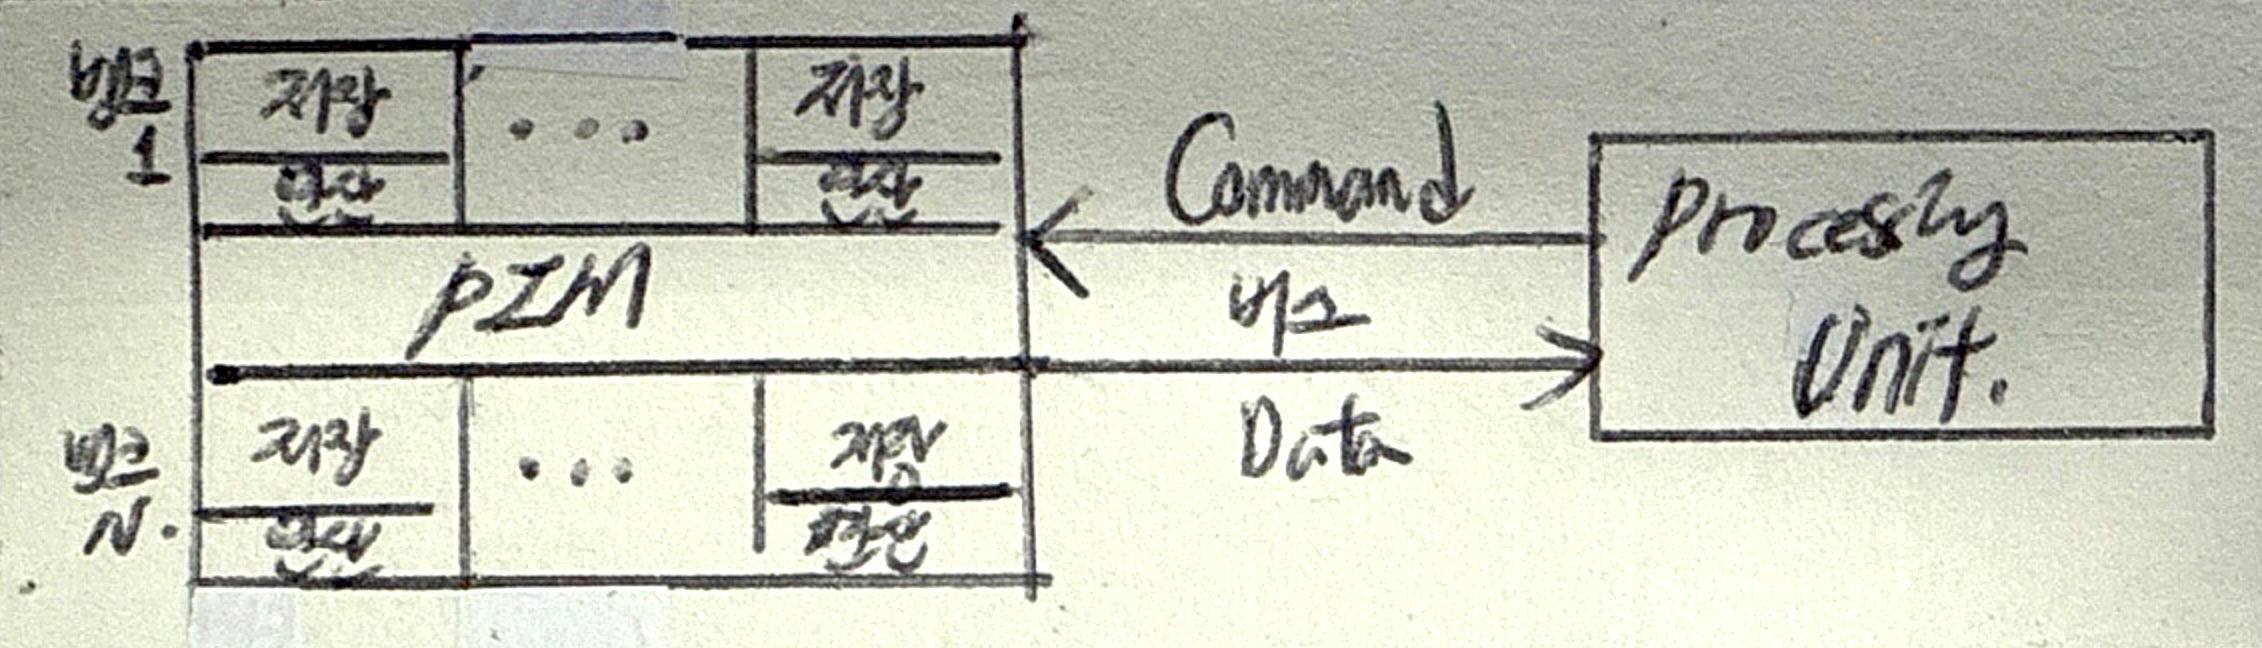 뱅크
1
저장 ... 저장
연산 연산
PIM
뱅크
N.
저장 ... 저장
연산 연산
Command
버스
Data
Processing
Unit.